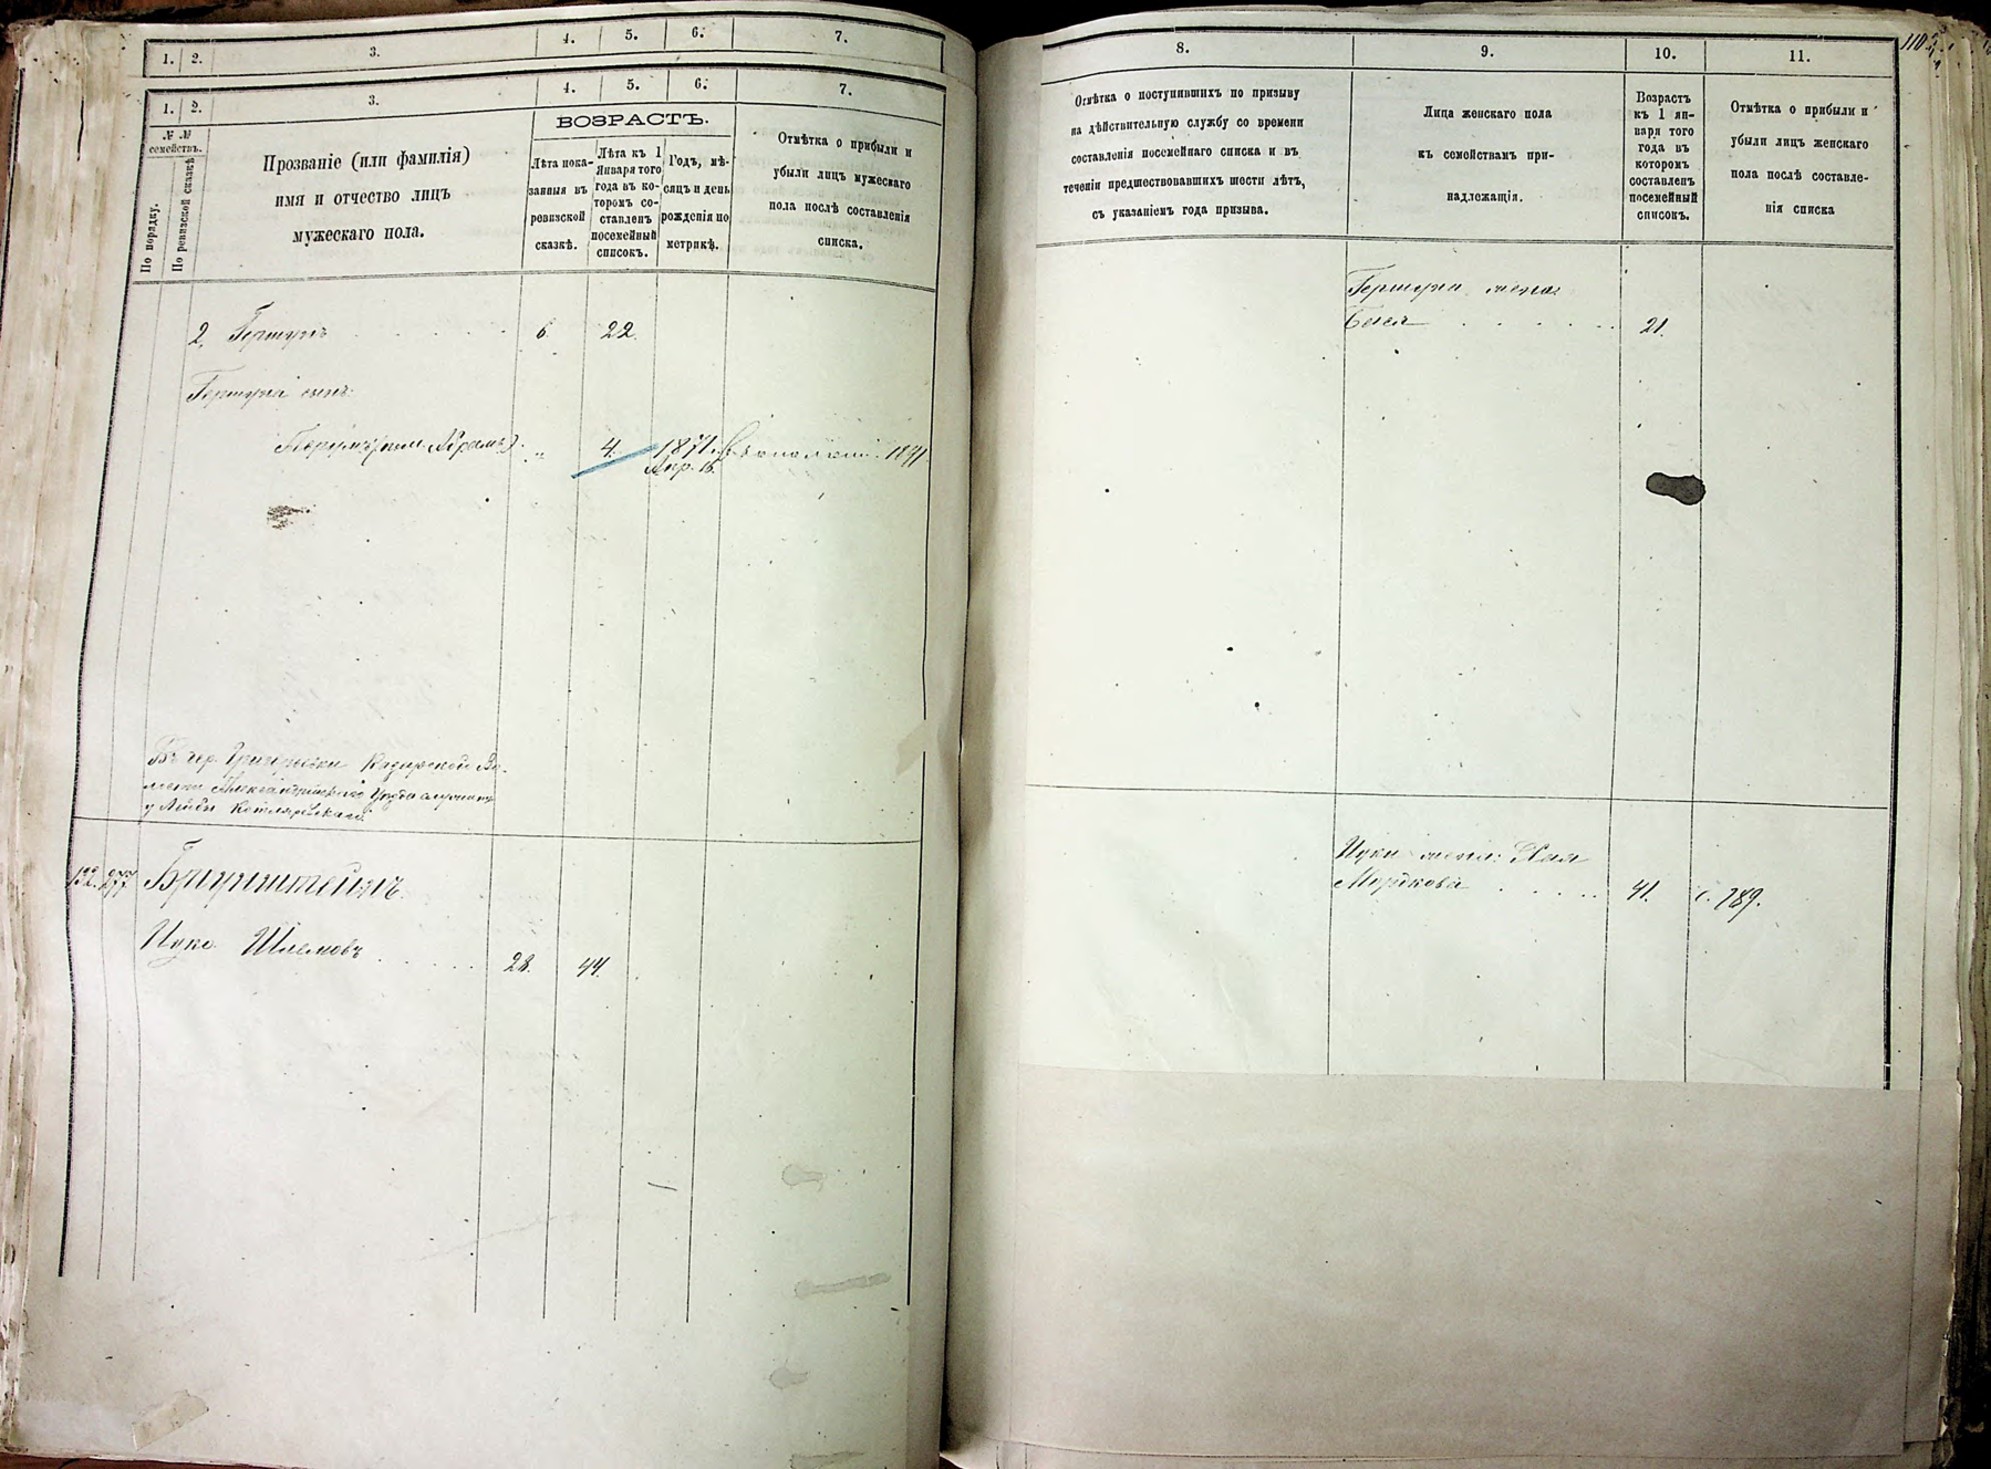 1. 2. 3. 4. 5. 6. 7.
1. 2. 3. 4. 5. 6. 7.
№ №
семействъ.
По порядку.
По ревизской сказкѣ
Прозваніе (или фамилія)
имя и отчество лицъ
мужескаго пола.
ВОЗРАСТЪ.
Лѣта пока-
занныя въ
ревизской
сказкѣ.
Лѣта къ 1
Января того
года въ ко-
торомъ со-
ставленъ
посемейный
списокъ.
Годъ, мѣ-
сяцъ и день
рожденія по
метрикѣ.
Отмѣтка о прибыли и
убыли лицъ мужескаго
пола послѣ составленія
списка.
2. Гершунъ 6. 22.
Гершуна сынъ:
Абрамъ) „ 4. 1871. 1891.
Апр. 15.
Въ дер. Григорьевки Казарской Во-
лости Александрійскаго Уѣзда
у Лейбы Котляревскаго
132. 277. Бринштейнъ.
Ицко Шлемовъ 28. 44.
8. 9. 10. 11.
110
Отмѣтка о поступившихъ по призыву
на дѣйствительную службу со времени
составленія посемейнаго списка и въ
теченіи предшествовавшихъ шести лѣтъ,
съ указаніемъ года призыва.
Лица женскаго пола
къ семействамъ при-
надлежащія.
Возрастъ
къ 1 ян-
варя того
года въ
которомъ
составленъ
посемейный
списокъ.
Отмѣтка о прибыли и
убыли лицъ женскаго
пола послѣ составле-
нія списка
Гершуна жена:
Бейла 21.
Ицки жена: Хая
Мордкова 41. с. 789.